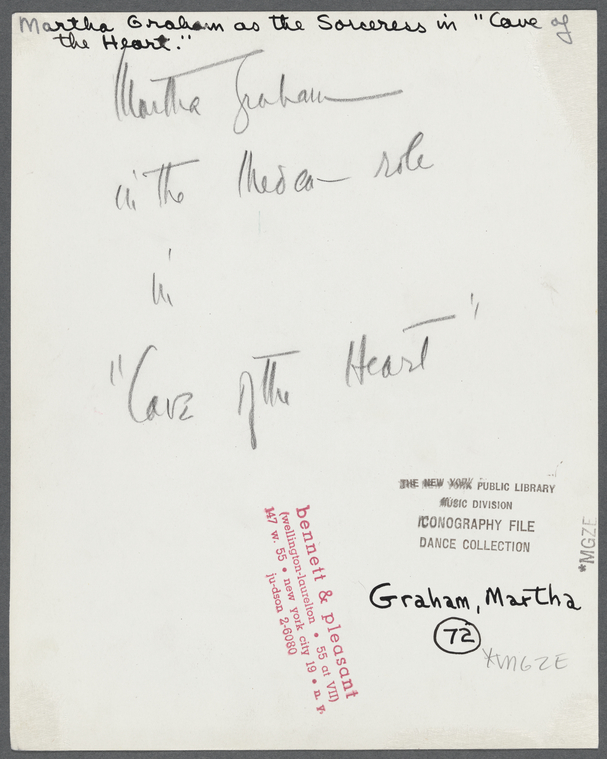 Martha Graham as the Sorceress in "Cave of
the Heart."
Martha Graham
in the Medea role
in
"Cave of the Heart"
THE NEW YORK PUBLIC LIBRARY
MUSIC DIVISION
ICONOGRAPHY FILE
DANCE COLLECTION
*MGZE
Graham, Martha
72
*MGZE
bennett & pleasant
(wellington-laurelton • 55 at VII)
147 w. 55 • new york city 19 • n. y.
ju-dson 2-6080